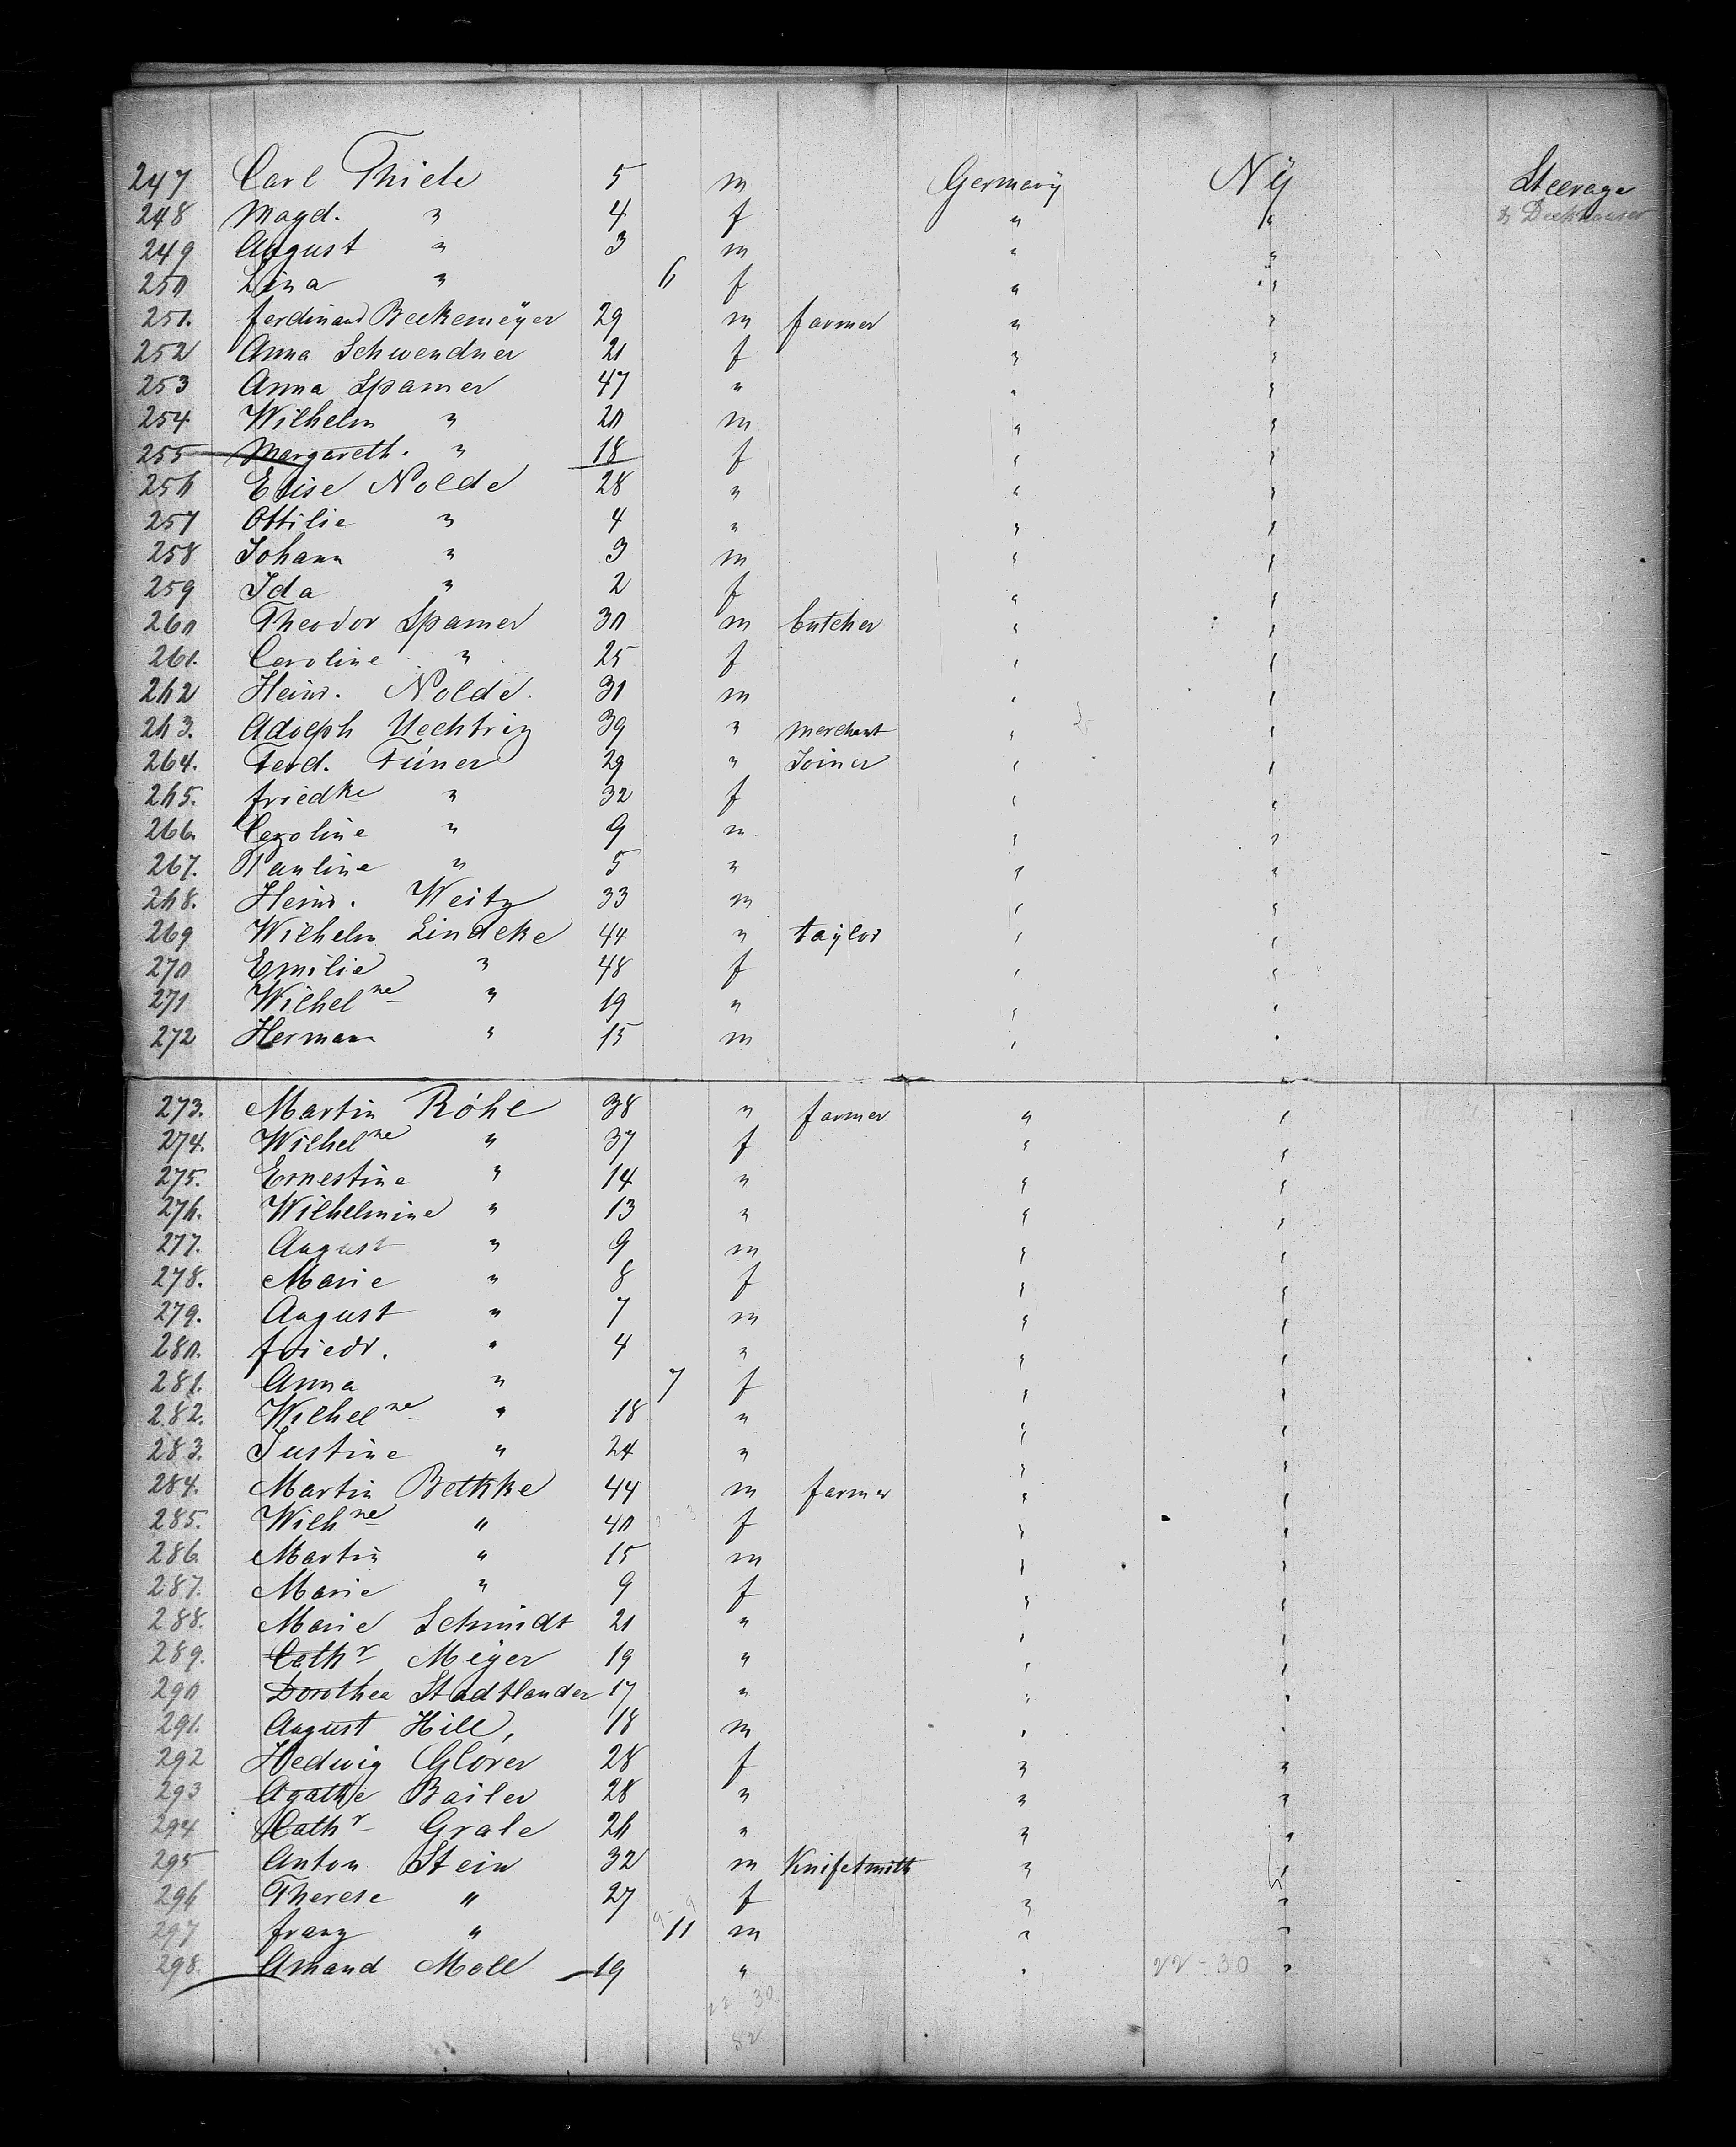 247 Carl Thiele 5 m Germany Ny Steerage
248 Magd. " 4 f " " Deckhouse
249 August " 3 m " "
250 Lina " 6 f " "
251. Ferdinand Beekemeÿer 29 m farmer " "
252 Anna Schwendner 21 f " "
253 Anna Spamer 47 " " "
254 Wilhelm " 20 m " "
255 Margareth. " 18 f " "
256 Elise Nolde 28 " " "
257 Ottilie " 4 " " "
258 Johann " 3 m " "
259 Ida " 2 f " "
260 Theodor Spamer 30 m butcher " "
261. Caroline " 25 f " "
262 Heinr. Nolde 31 m " "
263. Adolph Uechtriz 39 " merchant " "
264. Ferd. Tüner 29 " Joiner " "
265. friedke " 32 f " "
266. Caroline " 9 m " "
267. Pauline " 5 " " "
268. Heinr. Weitz 33 m " "
269 Wilhelm Lindeke 44 " taylor " "
270 Emilie " 48 f " "
271 Wilhelne " 19 " " "
272 Herman " 15 m " "
273. Martin Röhl 38 " farmer " "
274. Wilhelne " 37 f " "
275. Ernestine " 14 " " "
276. Wilhelmine " 13 " " "
277. August " 9 m " "
278. Marie " 8 f " "
279. August " 7 m " "
280. friedr. " 4 " " "
281. Anna " 7 f " "
282. Wilhelne " 18 " " "
283. Justine " 24 " " "
284. Martin Bethke 44 m farmer " "
285. Wilhne " 40 f " "
286 Martin " 15 m " "
287. Marie " 9 f " "
288. Marie Schmidt 21 " " "
289. Cathr Meÿer 19 " " "
290 Dorothea Stadtlander 17 " " "
291. August Hill, 18 m " "
292 Hedwig Glorer 28 f " "
293 Agathe Bailer 28 " " "
294 Cathr Grale 26 " " "
295 Anton Stein 32 m Knifesmith " "
296 Therese " 27 f " "
297 franz " 11 m " "
298. Amand Moll 19 " " 22-30 "
22 30
52